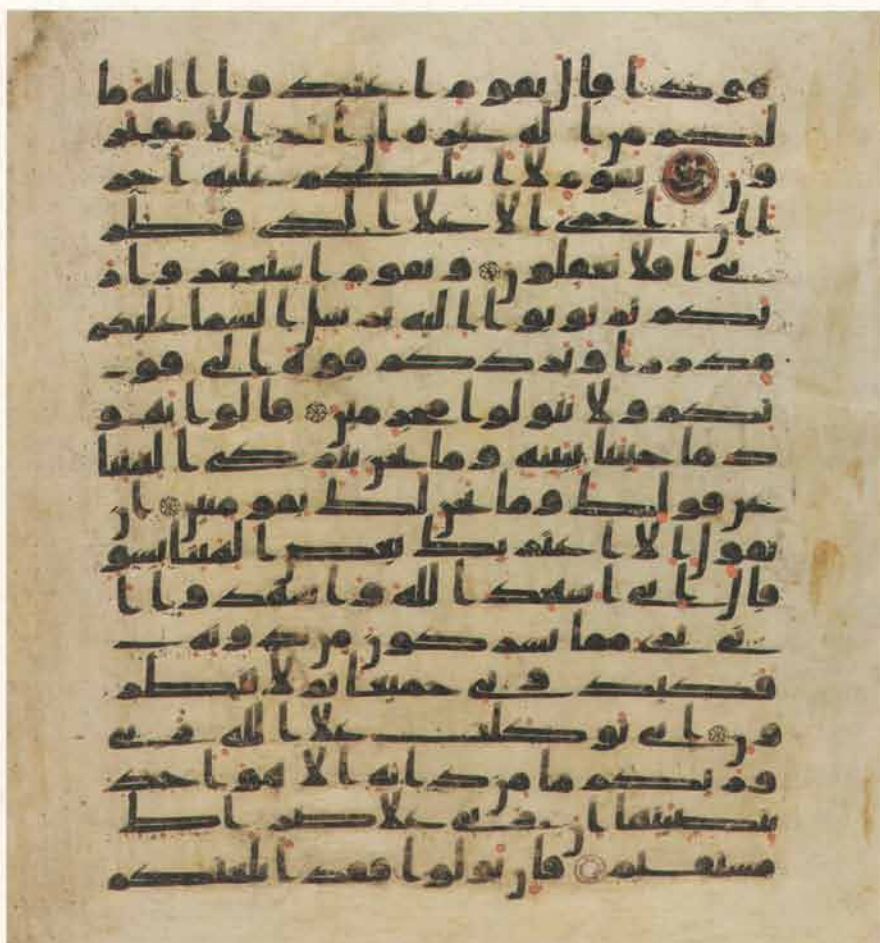 هودا قال يقوم اعبدوا الله ما
لكم من اله غيره ان انتم الا مفتر
ون يقوم لا اسلكم عليه اجر
ا ان اجري الا علا الذي فطر
ني افلا تعقلون ويقوم استغفروا ر
بكم ثم توبوا اليه يرسل السما عليكم
مدرارا ويزدكم قوة الى قو
تكم ولا تتولوا مجرمين قالوا يهو
د ما جيتنا ببينة وما نحن بتركي الهتنا
عن قولك وما نحن لك بمومنين ان
نقول الا اعتريك بعض الهتنا بسو
قال اني اشهد الله واشهدوا ا
ني بري مما تشركون من دونه
فكيدوني جميعا ثم لا تنظر
ون اني توكلت علا الله ربي
وربكم ما من دابة الا هو اخذ
بنصيتها ان ربي علا صراط
مستقيم فان تولوا فقد ابلغتكم